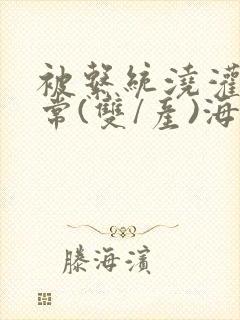 被繫統澆灌
常(雙/產)海
滕海濱